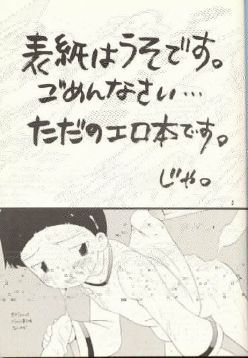 表紙はうそです。
ごめんなさい…
ただのエロ本です。
じゃ。